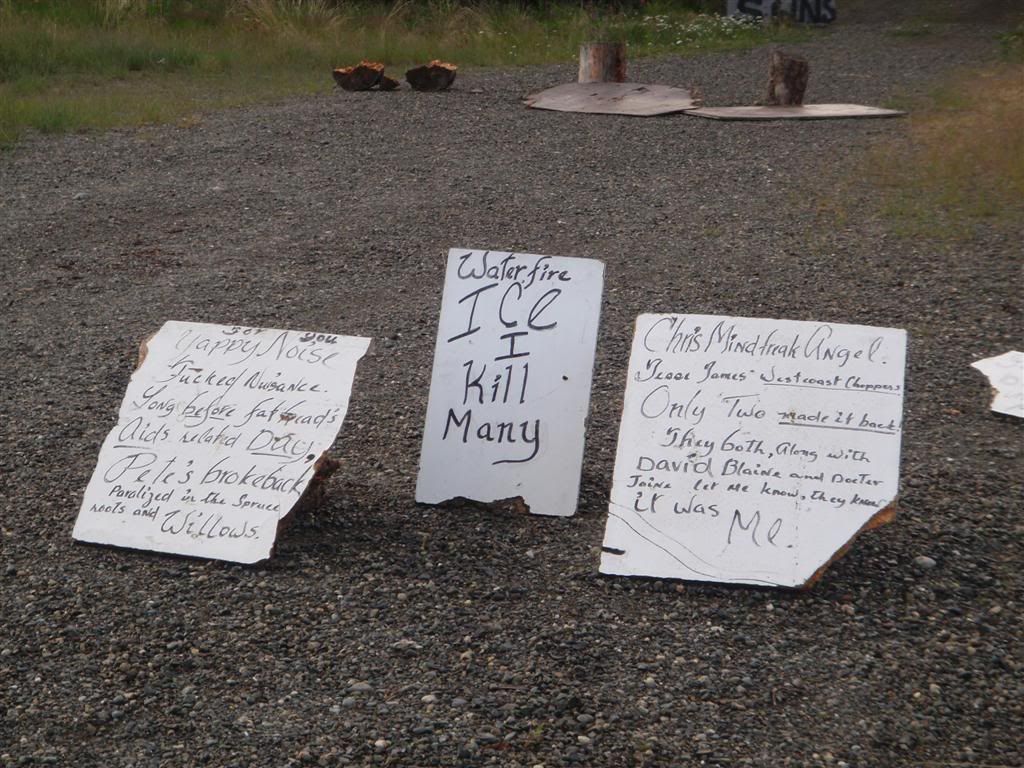 for you
Yappy Noise
Fucked Nuisance.
Long before fathead's
Aids related Day,
Pete's brokeback
Paralized in the Spruce
roots and Willows.
Waterfire
ICe
I
Kill
Many
Chris Mindfreak Angel.
Jesse James' Westcoast Choppers
Only Two made it back!
They both, Along with
David Blaine and Docter
Jaine let me know, they know
it was Me.